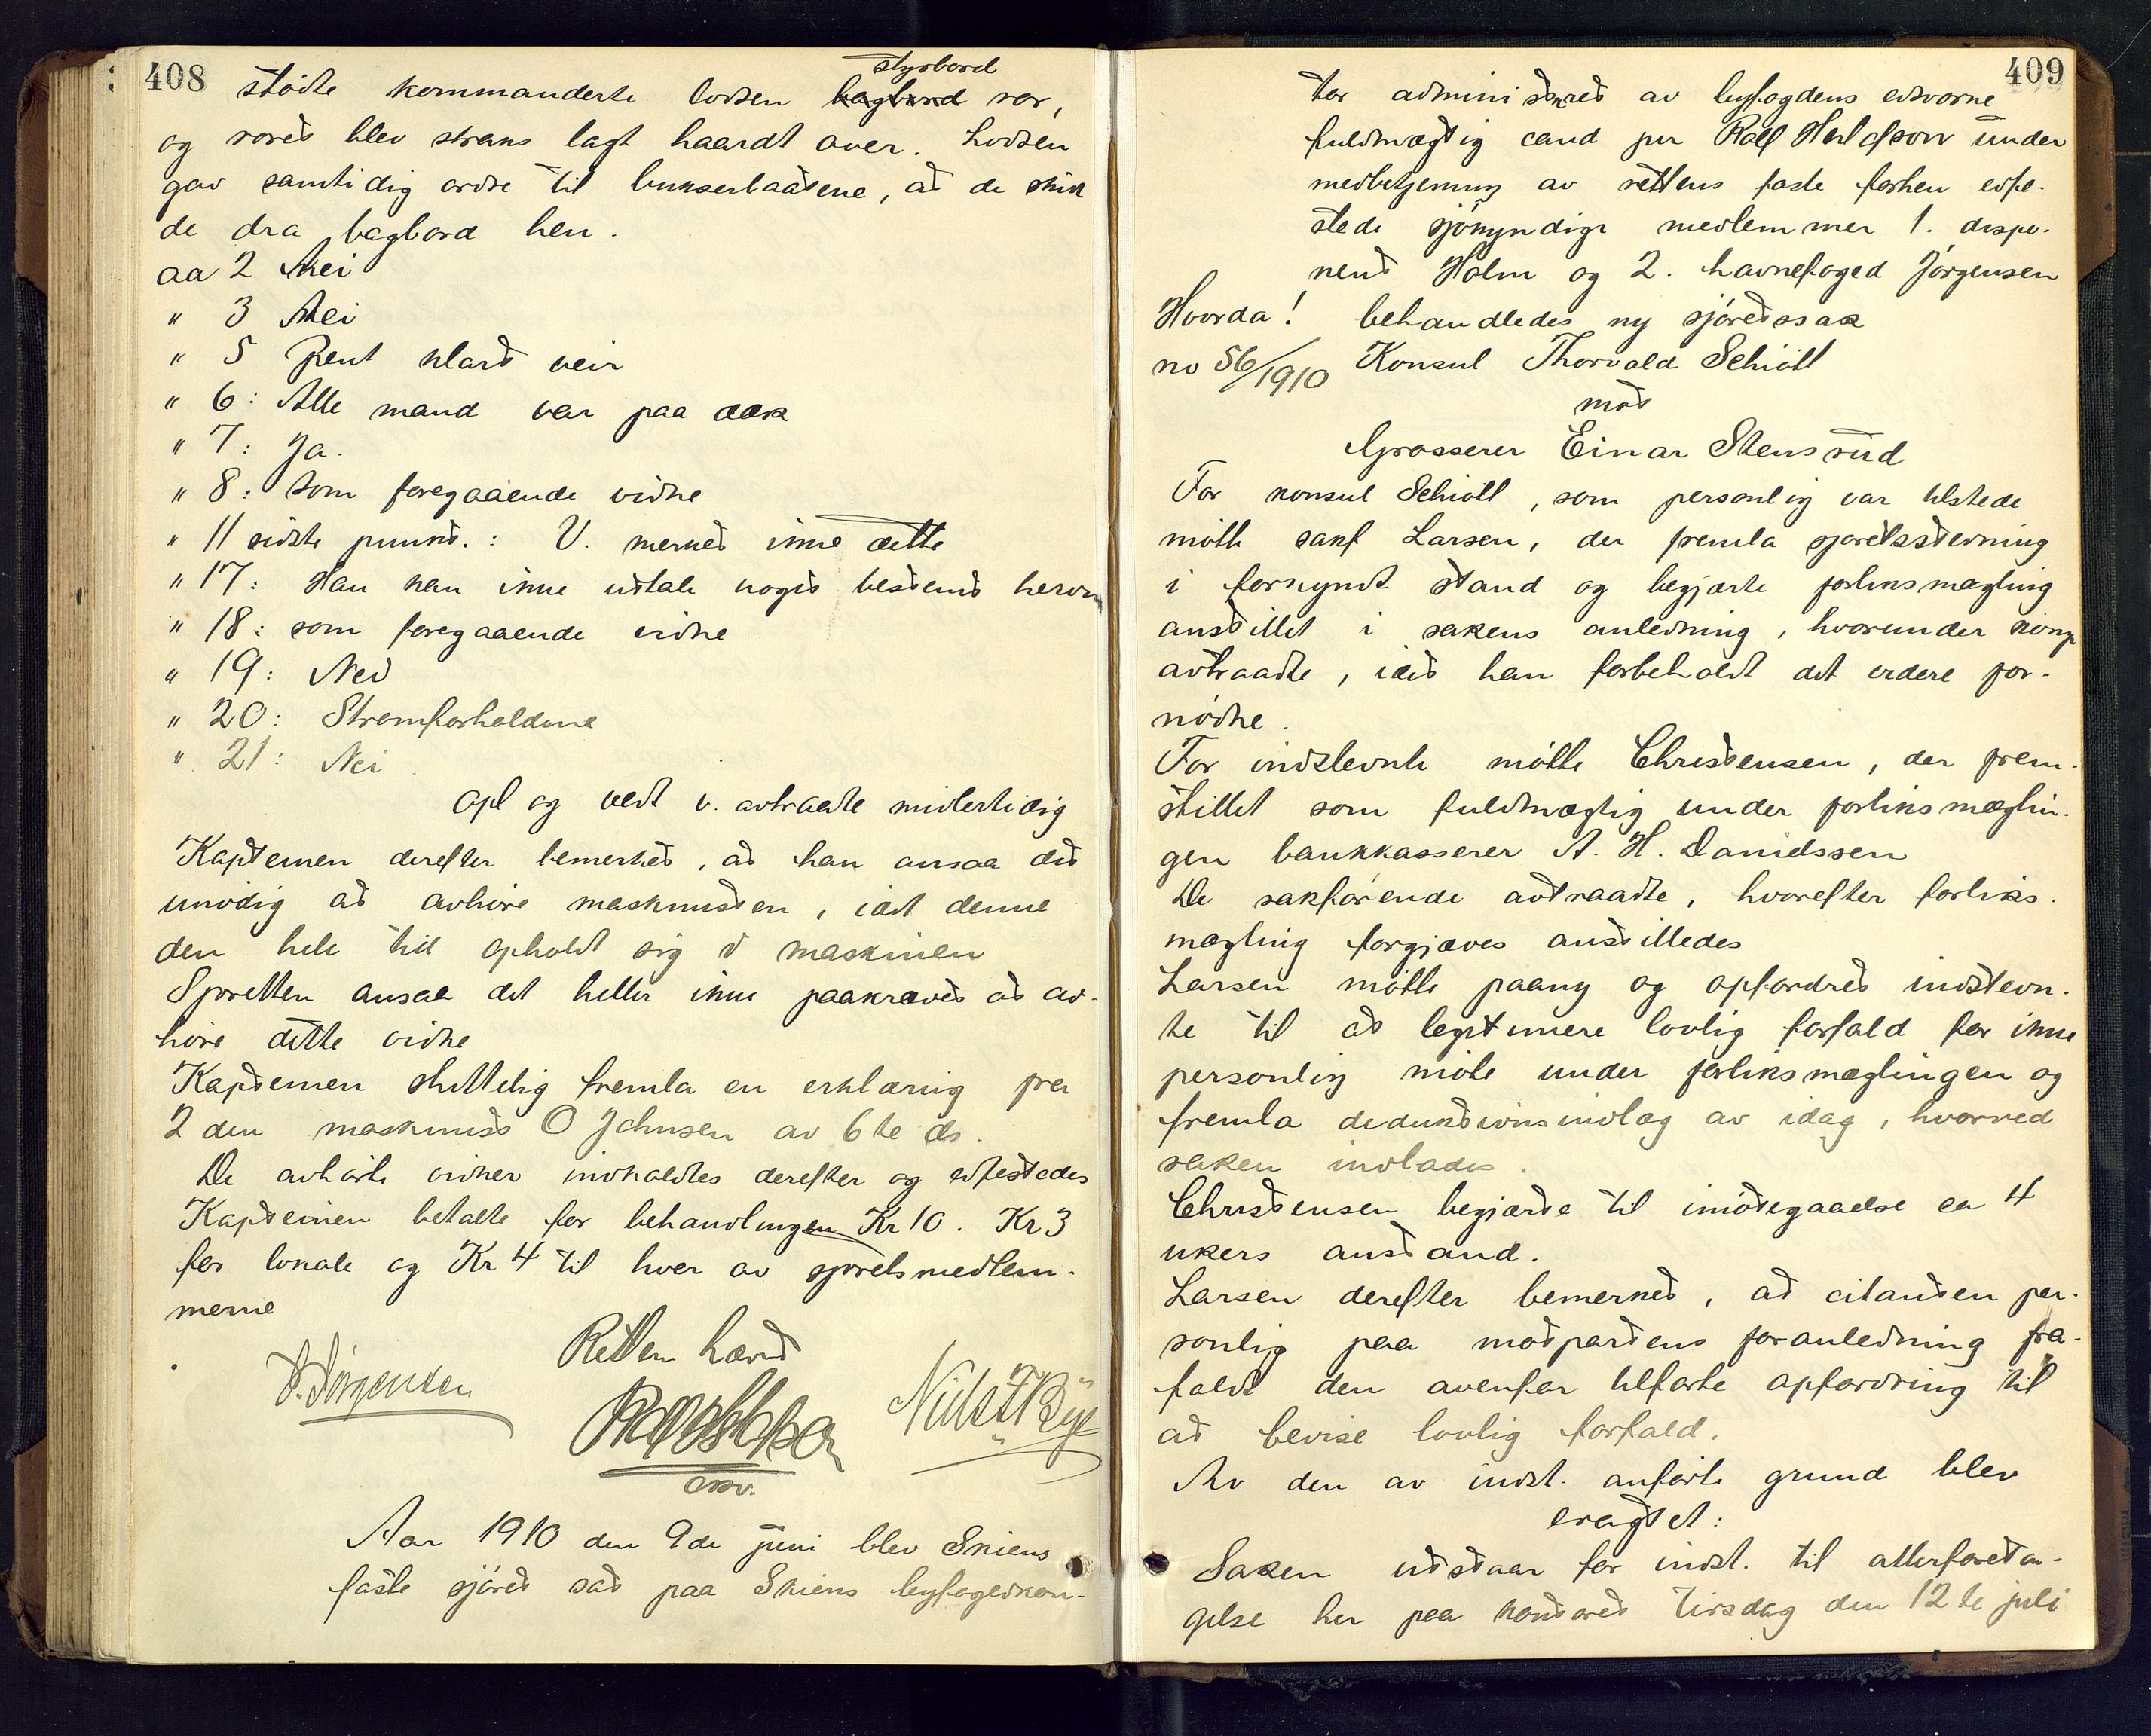 408
styrbord
stødte kommanderte lodsen bagbord ror,
og roret blev straks lagt haardt over. Lodsen
gav samtidig ordre til bukserbaatene, at de skul
de dra bagbord hen.
aa 2 Nei
" 3 Nei
" 5 Rent klart veir
" 6: Alle mand var paa dæk
" 7: Ja.
" 8: Som foregaaende vidne
" 11 sidste punkt.: V. merket ikke dette
" 17: Han kan ikke udtale noget bestemt herom
" 18: som foregaaende vidne
" 19: Nei
" 20: Strømforholdene
" 21: Nei
Opl og vedt v. avtraadte midlertidig
Kapteinen derefter bemerket, at han ansaa det
unødig at avhøre maskinisten, idet denne
den hele tid opholdt sig i maskinen
Sjøretten ansaa det heller ikke paakrævet at av-
høre dette vidne
Kapteinen sluttelig fremla en erklæring fra
2den maskinist O Johnsen av 6te ds.
De avhørte vidner indkaldtes derefter og edfestedes
Kapteinen betalte for behandlingen Kr 10. Kr 3
for lokale og Kr 4 til hver av sjøretsmedlem-
merne
Retten hævet
J. Jørgensen
Niels F Bye
Aar 1910 den 9de juni blev Skiens
faste sjøret sat paa Skiens byfogedkon-
409
tor administreret av byfogdens edsvorne
fuldmægtig cand jur Rolf under
medbetjening av rettens faste forhen edfe-
stede sjøkyndige medlemmer 1. dispo-
nent Holm og 2. havnefoged Jørgensen
Hvorda! behandledes ny sjøretssak
no 56/1910 Konsul Thorvald Schiøtt
mot
Grosserer Einar Stensrud
For konsul Schiøtt, som personlig var tilstede
møtte sakf Larsen, der fremla sjøretsstevning
i forkyndt stand og begjærte forliksmægling
anstillet i sakens anledning, hvorunder komp
avtraadte, idet han forbeholdt det videre for-
nødne.
For indstevnte møtte Christensen, der frem-
stillet som fuldmægtig under forliksmæglin-
gen bankkasserer A. H. Danielssen
De sakførende avtraadte, hvorefter forliks-
mægling forgjæves anstilledes
Larsen møtte paany og opfordret indstevn-
te til at legitimere lovlig forfald for ikke
personlig møte under forliksmæglingen og
fremla deduktionsindlæg av idag, hvorved
saken indlades.
Christensen begjærte til imøtegaaelse en 4
ukers anstand.
Larsen derefter bemerket, at citanten per-
sonlig paa motpartens foranledning fra-
faldt den ovenfor tilførte opfordring til
at bevise lovlig forfald.
Av den av indst. anførte grund blev
eragtet:
Saken utstaar for indst. til atterforeta-
gelse her paa kontoret Tirsdag den 12te juli